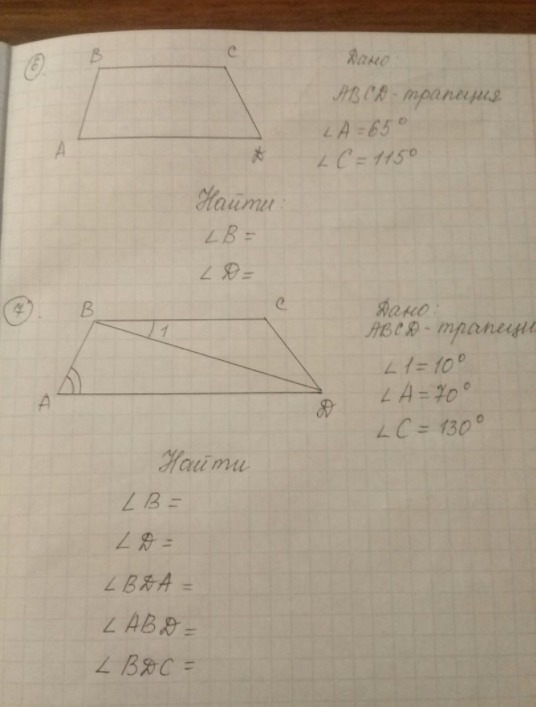 6
B C
A D
Дано:
ABCD - трапеция
∠A = 65°
∠C = 115°
Найти:
∠B =
∠D =
7.
B C
1
A D
Дано:
ABCD - трапеци
∠1 = 10°
∠A = 70°
∠C = 130°
Найти
∠B =
∠D =
∠BDA =
∠ABD =
∠BDC =